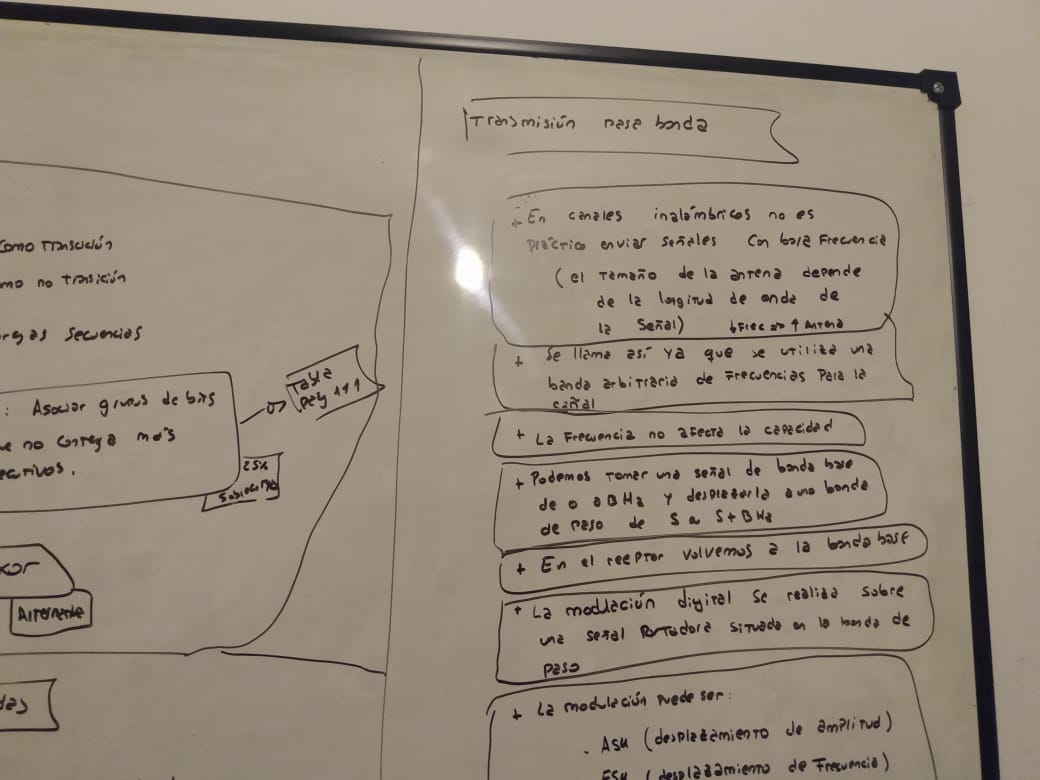 como Transición
mo no Transición
rgas secuencias
: Asociar grupos de bits
ue no contenga más
ecutivos.
Tabla
pag 111
25%
Alternada
das
Transmisión pasa banda
+ En canales inalámbricos no es
práctico enviar señales con baja Frecuencia
(el Tamaño de la antena depende
de la longitud de onda de
la señal) ↓Frec => ↑ Antena
+ Se llama así ya que se utiliza una
banda arbitraria de Frecuencias para la
señal
+ La Frecuencia no afecta la capacidad
+ Podemos tomar una señal de banda base
de 0 a B Hz y desplazarla a una banda
de paso de S a S+B Hz
+ En el receptor volvemos a la banda base
+ La modulación digital se realiza sobre
una señal Portadora situada en la banda de
paso
+ La modulación puede ser:
. ASK (desplazamiento de amplitud)
FSK (desplazamiento de Frecuencia)